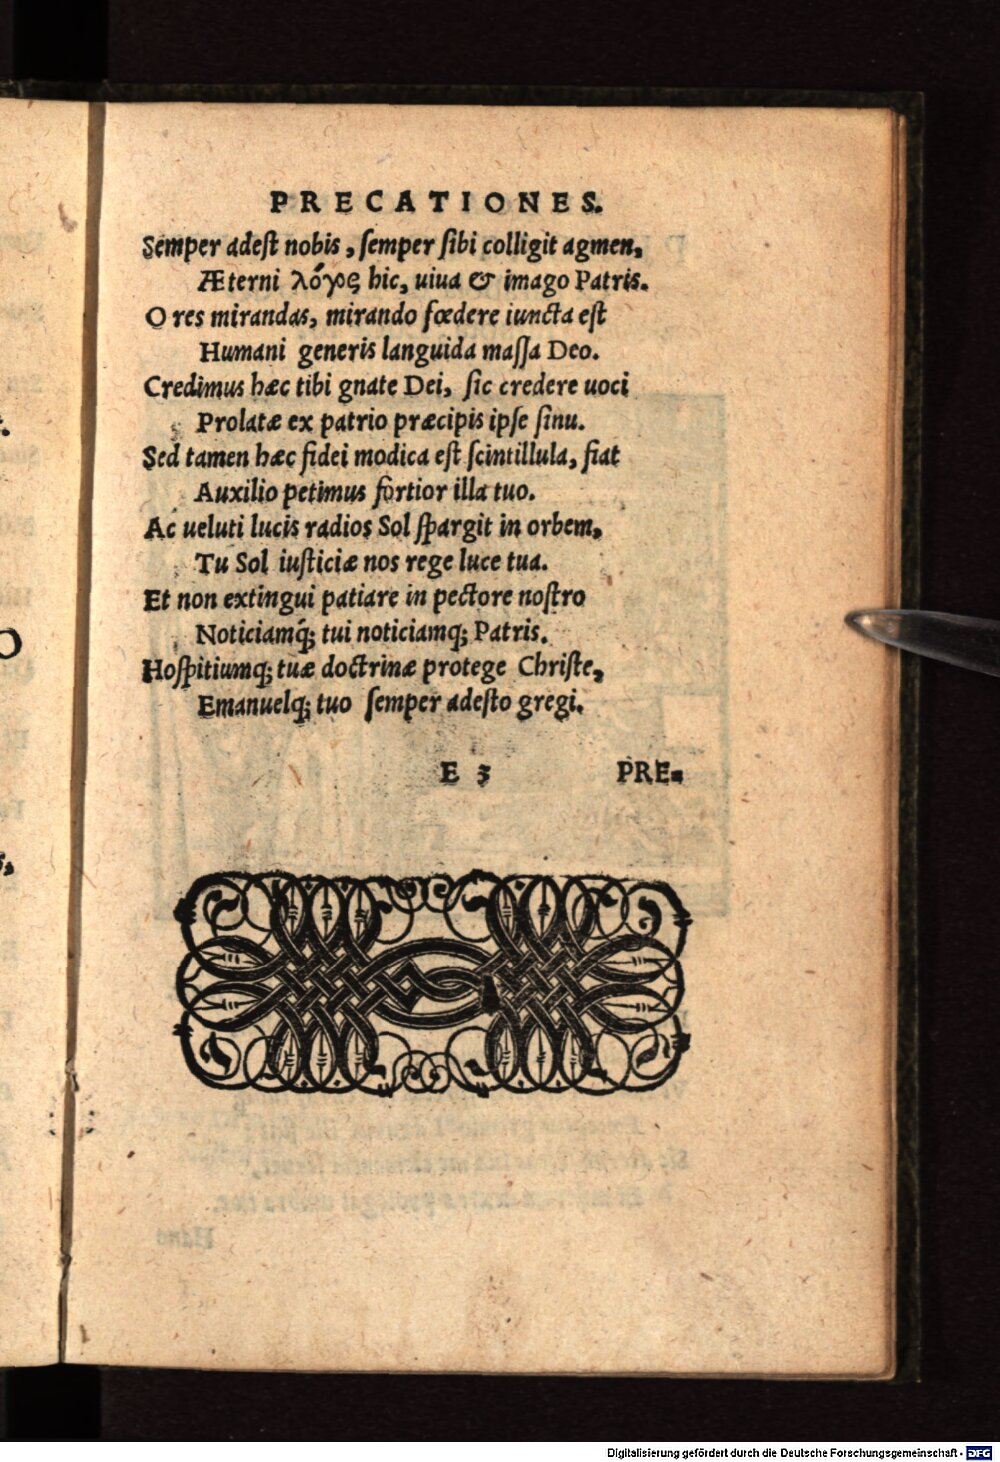 PRECATIONES.
Semper adeſt nobis, ſemper ſibi colligit agmen,
Æterni λόγος hic, uiua & imago Patris.
O res mirandas, mirando fœdere iuncta eſt
Humani generis languida maſſa Deo.
Credimus hæc tibi gnate Dei, ſic credere uoci
Prolatæ ex patrio præcipis ipſe ſinu.
Sed tamen hæc fidei modica eſt ſcintillula, fiat
Auxilio petimus fortior illa tuo.
Ac ueluti lucis radios Sol ſpargit in orbem,
Tu Sol iuſticiæ nos rege luce tua.
Et non extingui patiare in pectore noſtro
Noticiamq́; tui noticiamq; Patris.
Hoſpitiumq; tuæ doctrinæ protege Chriſte,
Emanuelq́; tuo ſemper adeſto gregi.
E 3 PRE-
Digitalisierung gefördert durch die Deutsche Forschungsgemeinschaft - DFG